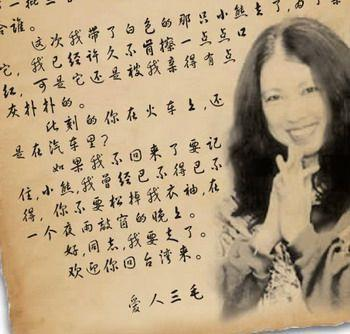 一批三
会谁。
这次我带了白色的那只小熊去了，为了亲
它，我已经许久不肯擦一点点口
红，可是它还是被我亲得有点
灰扑扑的。
此刻的你在火车上，还
是在汽车里？
如果我不回来了要记
住，小熊，我曾经已不得已不
得，你不要松掉我衣袖，在
一个夜雨敲窗的晚上。
好，同志，我要走了。
欢迎你回台湾来。
爱人三毛